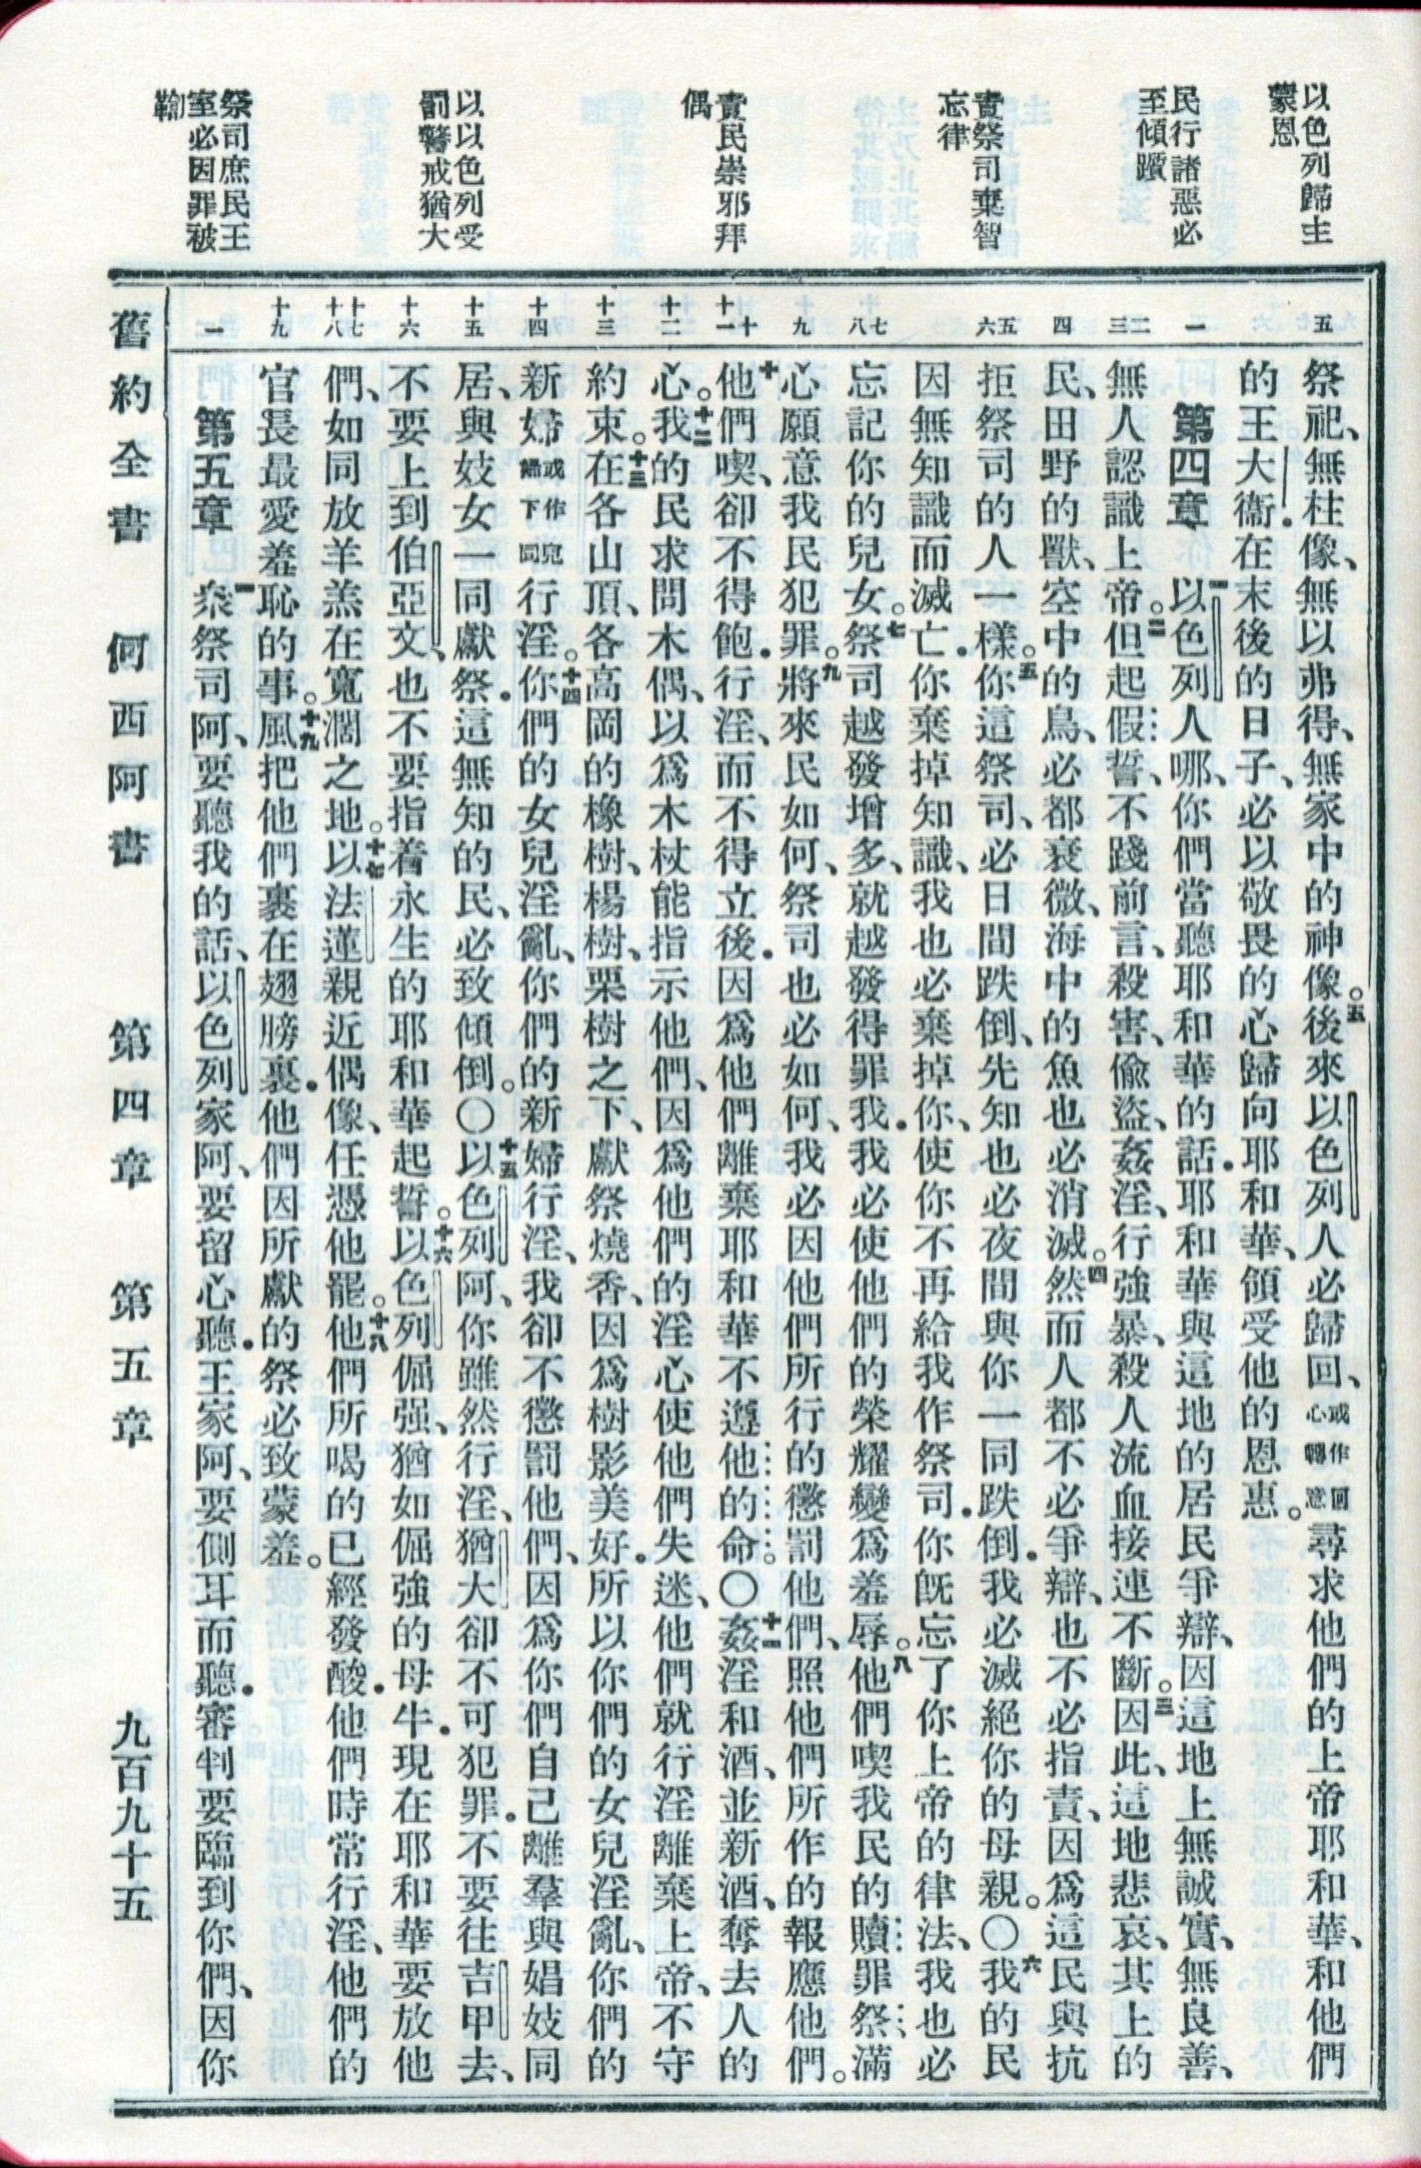 以色列歸主
蒙恩
民行諸惡必
至傾躓
責祭司棄智
忘律
責民崇邪拜
偶
以以色列受
罰警戒猶大
祭司庶民王
室必因罪被
鞫
五
一
二
三
四
五
六
七
八
九
十
十一
十二
十三
十四
十五
十六
十七
十八
十九
一
祭祀、無柱像、無以弗得、無家中的神像。五後來以色列人必歸回、或作回心轉意尋求他們的上帝耶和華、和他們
的王大衞.在末後的日子、必以敬畏的心歸向耶和華、領受他的恩惠。
第四章 一以色列人哪、你們當聽耶和華的話.耶和華與這地的居民爭辯、因這地上無誠實、無良善、
無人認識上帝。二但起假誓、不踐前言、殺害、偷盜、姦淫、行強暴、殺人流血接連不斷。三因此、這地悲哀、其上的
民、田野的獸、空中的鳥、必都衰微、海中的魚也必消滅。四然而人都不必爭辯、也不必指責、因爲這民與抗
拒祭司的人一樣。五你這祭司、必日間跌倒、先知也必夜間與你一同跌倒.我必滅絕你的母親。〇六我的民
因無知識而滅亡.你棄掉知識、我也必棄掉你、使你不再給我作祭司.你旣忘了你上帝的律法、我也必
忘記你的兒女。七祭司越發增多、就越發得罪我.我必使他們的榮耀變爲羞辱。八他們喫我民的贖罪祭、滿
心願意我民犯罪。九將來民如何、祭司也必如何、我必因他們所行的懲罰他們、照他們所作的報應他們。
十他們喫、卻不得飽.行淫、而不得立後.因爲他們離棄耶和華不遵他的命。〇十一姦淫和酒、並新酒、奪去人的
心。十二我的民求問木偶、以爲木杖能指示他們、因爲他們的淫心使他們失迷、他們就行淫離棄上帝、不守
約束。十三在各山頂、各高岡的橡樹、楊樹、栗樹之下、獻祭燒香、因爲樹影美好.所以你們的女兒淫亂、你們的
新婦或作兒婦下同行淫。十四你們的女兒淫亂、你們的新婦行淫、我卻不懲罰他們、因爲你們自己離羣與娼妓同
居、與妓女一同獻祭.這無知的民、必致傾倒。〇十五以色列阿、你雖然行淫、猶大卻不可犯罪.不要往吉甲去、
不要上到伯亞文、也不要指着永生的耶和華起誓。十六以色列倔强、猶如倔強的母牛.現在耶和華要放他
們、如同放羊羔在寬濶之地。十七以法蓮親近偶像、任憑他罷。十八他們所喝的已經發酸.他們時常行淫、他們的
官長最愛羞恥的事。十九風把他們裹在翅膀裏.他們因所獻的祭必致蒙羞。
第五章 一衆祭司阿、要聽我的話、以色列家阿、要留心聽.王家阿、要側耳而聽.審判要臨到你們、因你
舊約全書 何西阿書 第四章 第五章 九百九十五